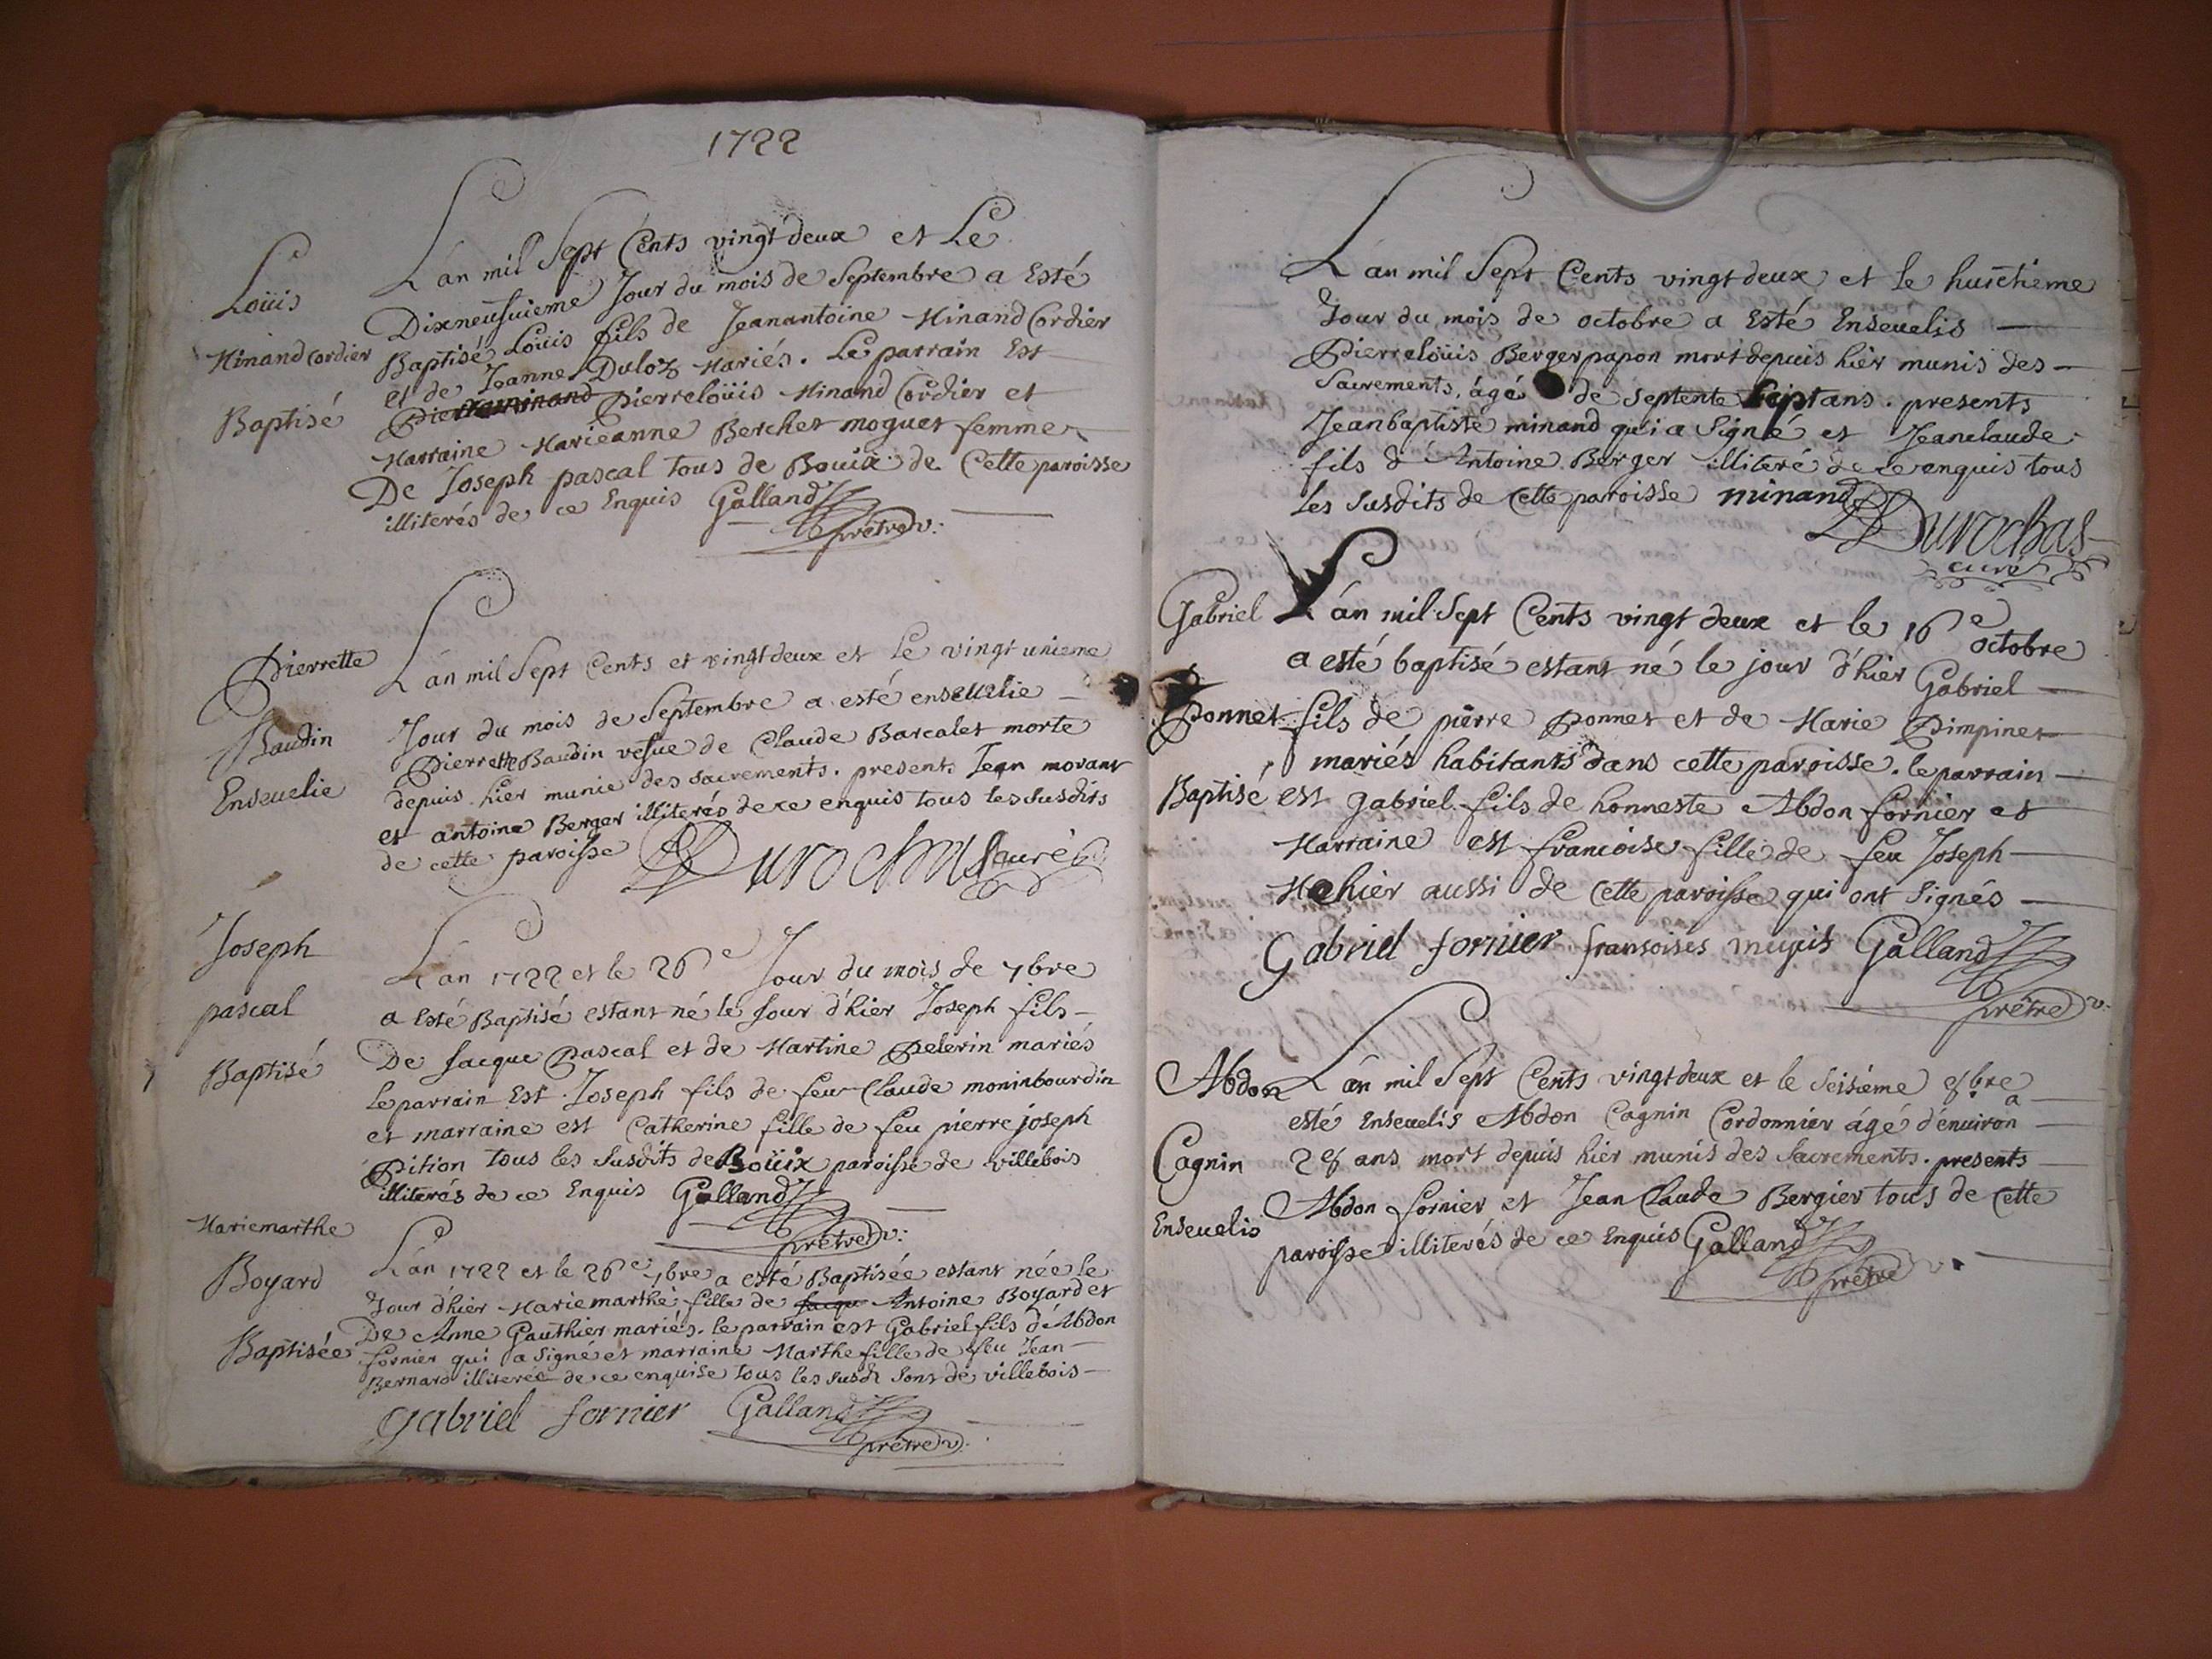 1722
Loüis
Minand Cordier
Baptisé
L'an mil Sept Cents vingt deux et Le
Dixneufuieme Jour du mois de Septembre a Esté
Baptisé Loüis fils de Jeanantoine Minand Cordier
et de Jeanne Duloz Mariés. Le parrain Est
Pierre minand Pierreloüis Minand Cordier et
Marraine Marieanne Berchet moguet femme
De Joseph pascal tous de Bouix de Cette paroisse
illiterés de ce Enquis Galland
prêtre v:
Pierrette
Baudin
Enseuelie
L'an mil Sept Cents et vingt deux et Le vingt unieme
Jour du mois de Septembre a esté enseuelie
Pierrette Baudin vefue de Claude Barcalet morte
depuis hier munie des sacrements. presents Jean morant
et antoine Berger illiterés de ce enquis tous les susdits
de cette paroisse Durochas curé
Joseph
pascal
Baptisé
L'an 1722 et le 26e Jour du mois de 7bre
a Esté Baptisé estant né le Jour d'hier Joseph fils
De Jacque Pascal et de Martine Pelerin mariés
le parrain Est Joseph fils de feu Claude moninbourdin
et marraine est Catherine fille de feu pierre joseph
Pition tous les susdits de Boüix paroisse de villebois
illiterés de ce Enquis Galland
prêtre v:
Mariemarthe
Boyard
Baptisée
L'an 1722 et le 26e 7bre a esté Baptisée estant née le
Jour dhier Mariemarthe fille de Jacque Antoine Boyard et
De Anne Gauthier mariés. le parrain est Gabriel fils d'Abdon
fornier qui a signé et marraine Marthe fille de feu Jean
Bernard illiterée de ce enquise tous les susd sont de villebois
gabriel fornier Galland
prêtre v:
L'an mil Sept Cents vingt deux et le huictieme
Jour du mois de octobre a Esté Enseuelis
Pierreloüis Bergerpapon mort depuis hier munis des
Sacrements, ágé de septente sept ans. presents
Jeanbaptiste minand qui a Signé et Jeanclaude
fils d'Antoine Berger illiteré de ce enquis tous
les susdits de Cette paroisse minand
Durochas
curé
Gabriel
Ponnet
Baptisé
L'an mil Sept Cents vingt deux et le 16e octobre
a esté baptisé estant né le jour d'hier Gabriel
fils de pierre Ponnet et de Marie Pimpinet
mariés habitants dans cette paroisse. le parrain
est gabriel fils de honneste Abdon fornier et
Marraine est francoise fille de feu Joseph
Mehier aussi de Cette paroisse qui ont Signés
Gabriel fornier fransoises Galland
prêtre v:
Abdon
Cagnin
Enseuelis
L'an mil Sept Cents vingt deux et le seisiéme 8bre a
esté Enseuelis Abdon Cagnin Cordonnier ágé d'enuiron
28 ans mort depuis hier munis des Sacrements. presents
Abdon fornier et Jean Claude Bergier tous de Cette
paroisse illiterés de ce Enquis Galland
prêtre v.